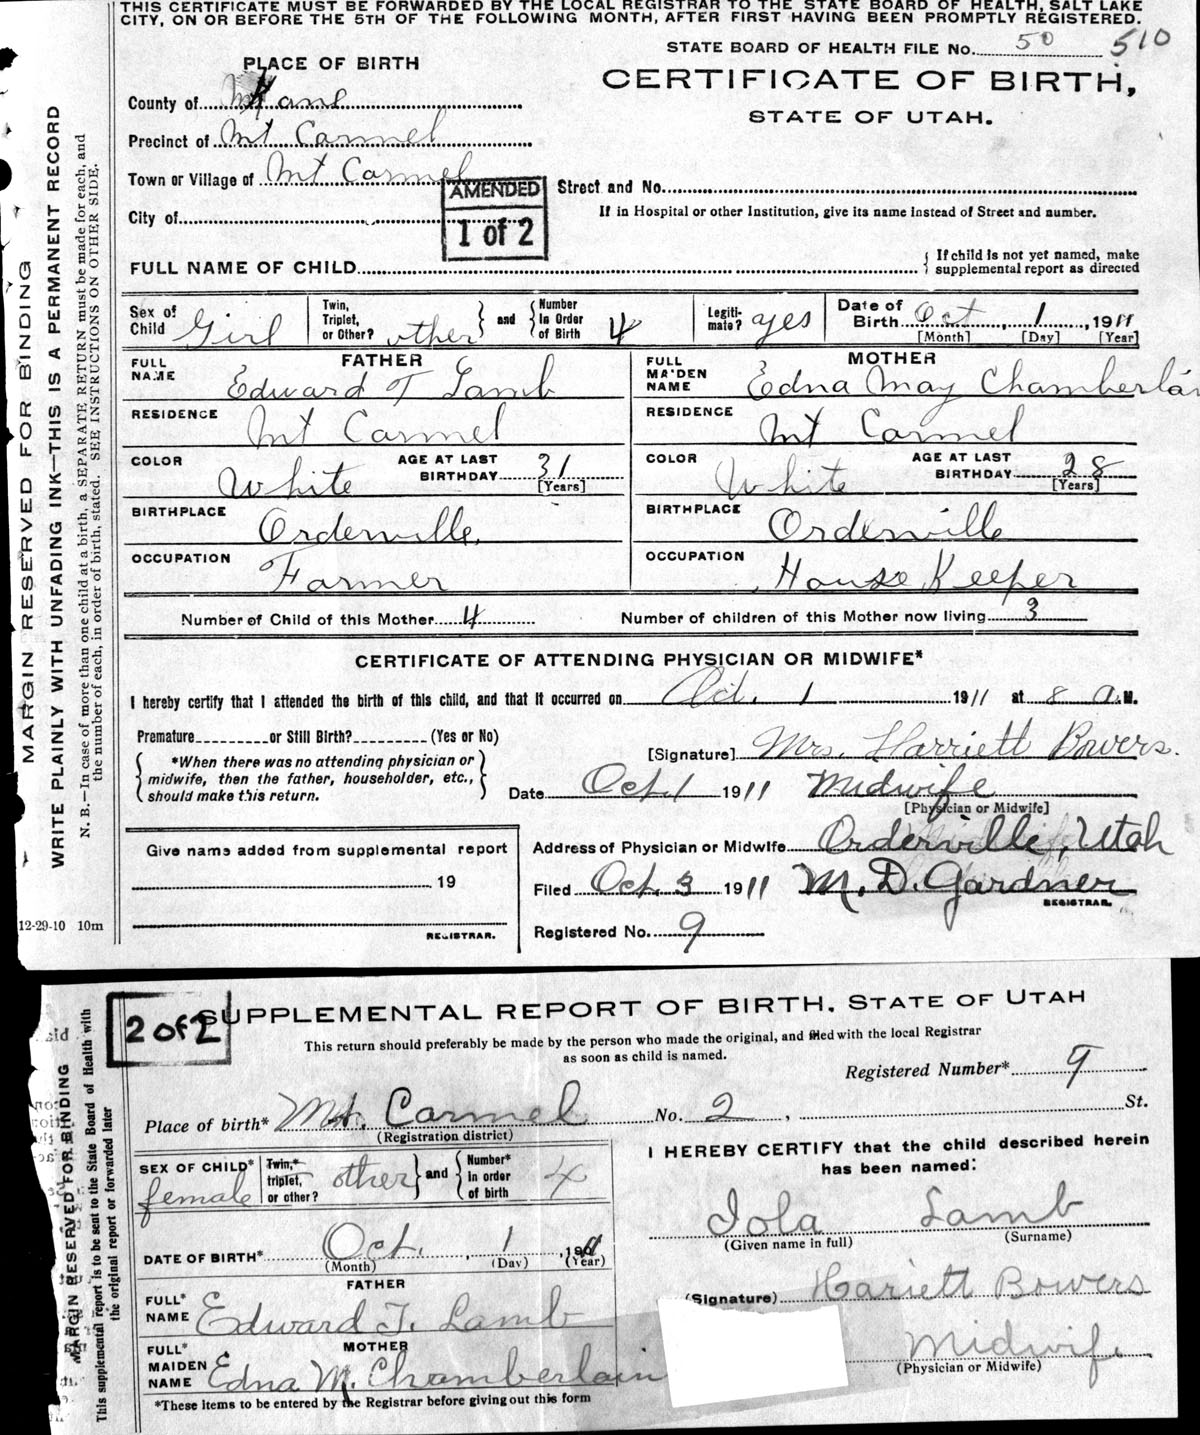 THIS CERTIFICATE MUST BE FORWARDED BY THE LOCAL REGISTRAR TO THE STATE BOARD OF HEALTH, SALT LAKE
CITY, ON OR BEFORE THE 5TH OF THE FOLLOWING MONTH, AFTER FIRST HAVING BEEN PROMPTLY REGISTERED.
STATE BOARD OF HEALTH FILE No. 50 510
PLACE OF BIRTH
CERTIFICATE OF BIRTH,
STATE OF UTAH.
County of Kane
Precinct of Mt Carmel
Town or Village of Mt Carmel
AMENDED
1 of 2
Street and No.
City of
If in Hospital or other Institution, give its name instead of Street and number.
FULL NAME OF CHILD
{ If child is not yet named, make
supplemental report as directed
Sex of
Child Girl
Twin,
Triplet,
or Other? other
and
Number
in Order
of Birth 4
Legiti-
mate? yes
Date of
Birth Oct, 1, 1911
[Month] [Day] [Year]
FATHER
FULL
NAME Edward T Lamb
MOTHER
FULL
MAIDEN
NAME Edna May Chamberlai
RESIDENCE Mt Carmel
RESIDENCE Mt Carmel
COLOR White
AGE AT LAST
BIRTHDAY 31
[Years]
COLOR White
AGE AT LAST
BIRTHDAY 28
[Years]
BIRTHPLACE Orderville
BIRTHPLACE Orderville
OCCUPATION Farmer
OCCUPATION House Keeper
Number of Child of this Mother 4
Number of children of this Mother now living 3
CERTIFICATE OF ATTENDING PHYSICIAN OR MIDWIFE*
I hereby certify that I attended the birth of this child, and that it occurred on Oct. 1 1911 at 8 a.M.
Premature or Still Birth? (Yes or No)
[Signature] Mrs. Harriett Bowers.
*When there was no attending physician or
midwife, then the father, householder, etc.,
should make this return.
Date Oct. 1 1911 Midwife
[Physician or Midwife]
Give name added from supplemental report
19
REGISTRAR.
Address of Physician or Midwife Orderville, Utah
Filed Oct. 3 1911 M. D. Gardner
REGISTRAR.
Registered No. 9
MARGIN RESERVED FOR BINDING
WRITE PLAINLY WITH UNFADING INK—THIS IS A PERMANENT RECORD
N. B.—In case of more than one child at a birth, a SEPARATE RETURN must be made for each, and
the number of each, in order of birth, stated. SEE INSTRUCTIONS ON OTHER SIDE.
12-29-10 10m
2 of 2
SUPPLEMENTAL REPORT OF BIRTH. STATE OF UTAH
This return should preferably be made by the person who made the original, and filed with the local Registrar
as soon as child is named.
Registered Number* 9
Place of birth* Mt. Carmel No. 2, St.
(Registration district)
SEX OF CHILD*
female
Twin,*
triplet,
or other? other
and
Number*
in order
of birth 4
I HEREBY CERTIFY that the child described herein
has been named:
Iola Lamb
(Given name in full) (Surname)
DATE OF BIRTH* Oct. , 1 , 1911
(Month) (Day) (Year)
FATHER
FULL*
NAME Edward T. Lamb
(Signature) Hariett Bowers
MOTHER
FULL*
MAIDEN
NAME Edna M. Chamberlain
Midwife
(Physician or Midwife)
*These items to be entered by the Registrar before giving out this form
MARGIN RESERVED FOR BINDING
This supplemental report is to be sent to the State Board of Health with
the original report or forwarded later